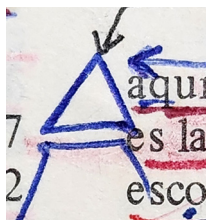 aqui
7 es la
2 esco